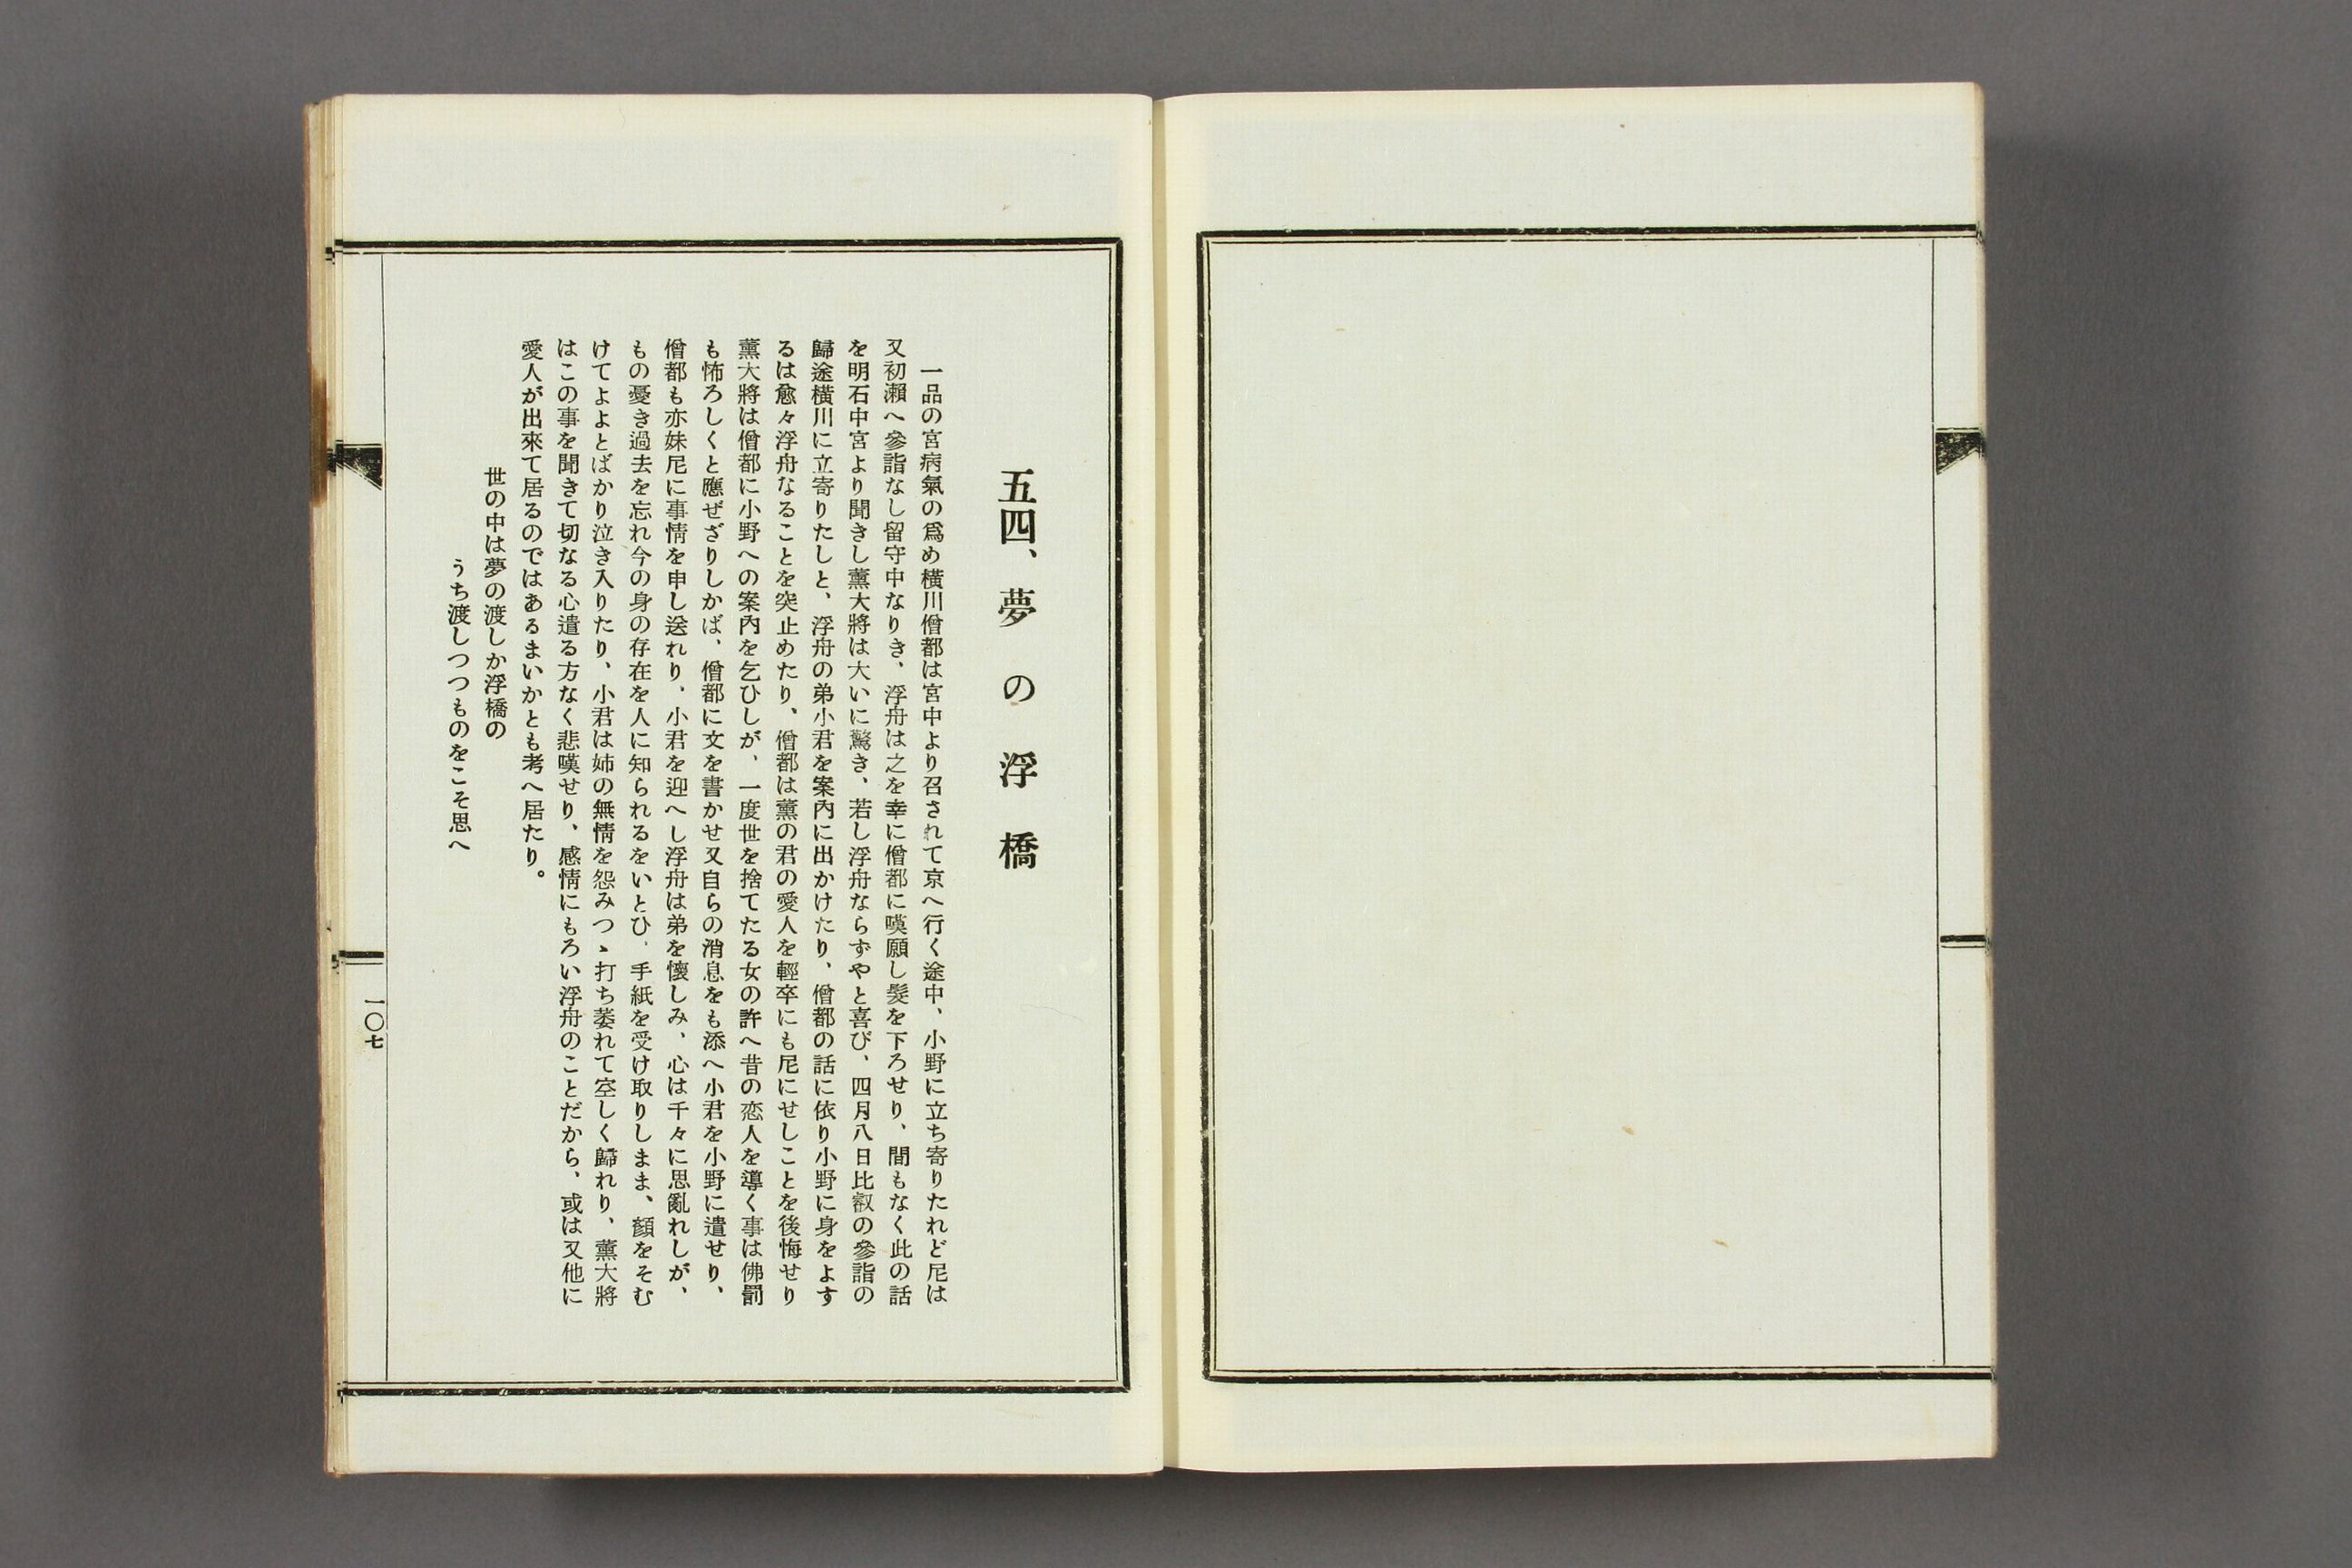 五四、夢の浮橋
一品の宮病氣の爲め橫川僧都は宮中より召されて京へ行く途中、小野に立ち寄りたれど尼は
又初瀨へ參詣なし留守中なりき、浮舟は之を幸に僧都に嘆願し髮を下ろせり、間もなく此の話
を明石中宮より聞きし薰大將は大いに驚き、若し浮舟ならずやと喜び、四月八日比叡の參詣の
歸途橫川に立寄りたしと、浮舟の弟小君を案內に出かけたり、僧都の話に依り小野に身をよす
るは愈々浮舟なることを突止めたり、僧都は薰の君の愛人を輕卒にも尼にせしことを後悔せり
薰大將は僧都に小野への案內を乞ひしが、一度世を捨てたる女の許へ昔の恋人を導く事は佛罰
も怖ろしくと應ぜざりしかば、僧都に文を書かせ又自らの消息をも添へ小君を小野に遣せり、
僧都も亦妹尼に事情を申し送れり、小君を迎へし浮舟は弟を懷しみ、心は千々に思亂れしが、
もの憂き過去を忘れ今の身の存在を人に知られるをいとひ、手紙を受け取りしまま、顏をそむ
けてよよとばかり泣き入りたり、小君は姉の無情を怨みつゝ打ち萎れて空しく歸れり、薰大將
はこの事を聞きて切なる心遣る方なく悲嘆せり、感情にもろい浮舟のことだから、或は又他に
愛人が出來て居るのではあるまいかとも考へ居たり。
世の中は夢の渡しか浮橋の
うち渡しつつものをこそ思へ
一〇七